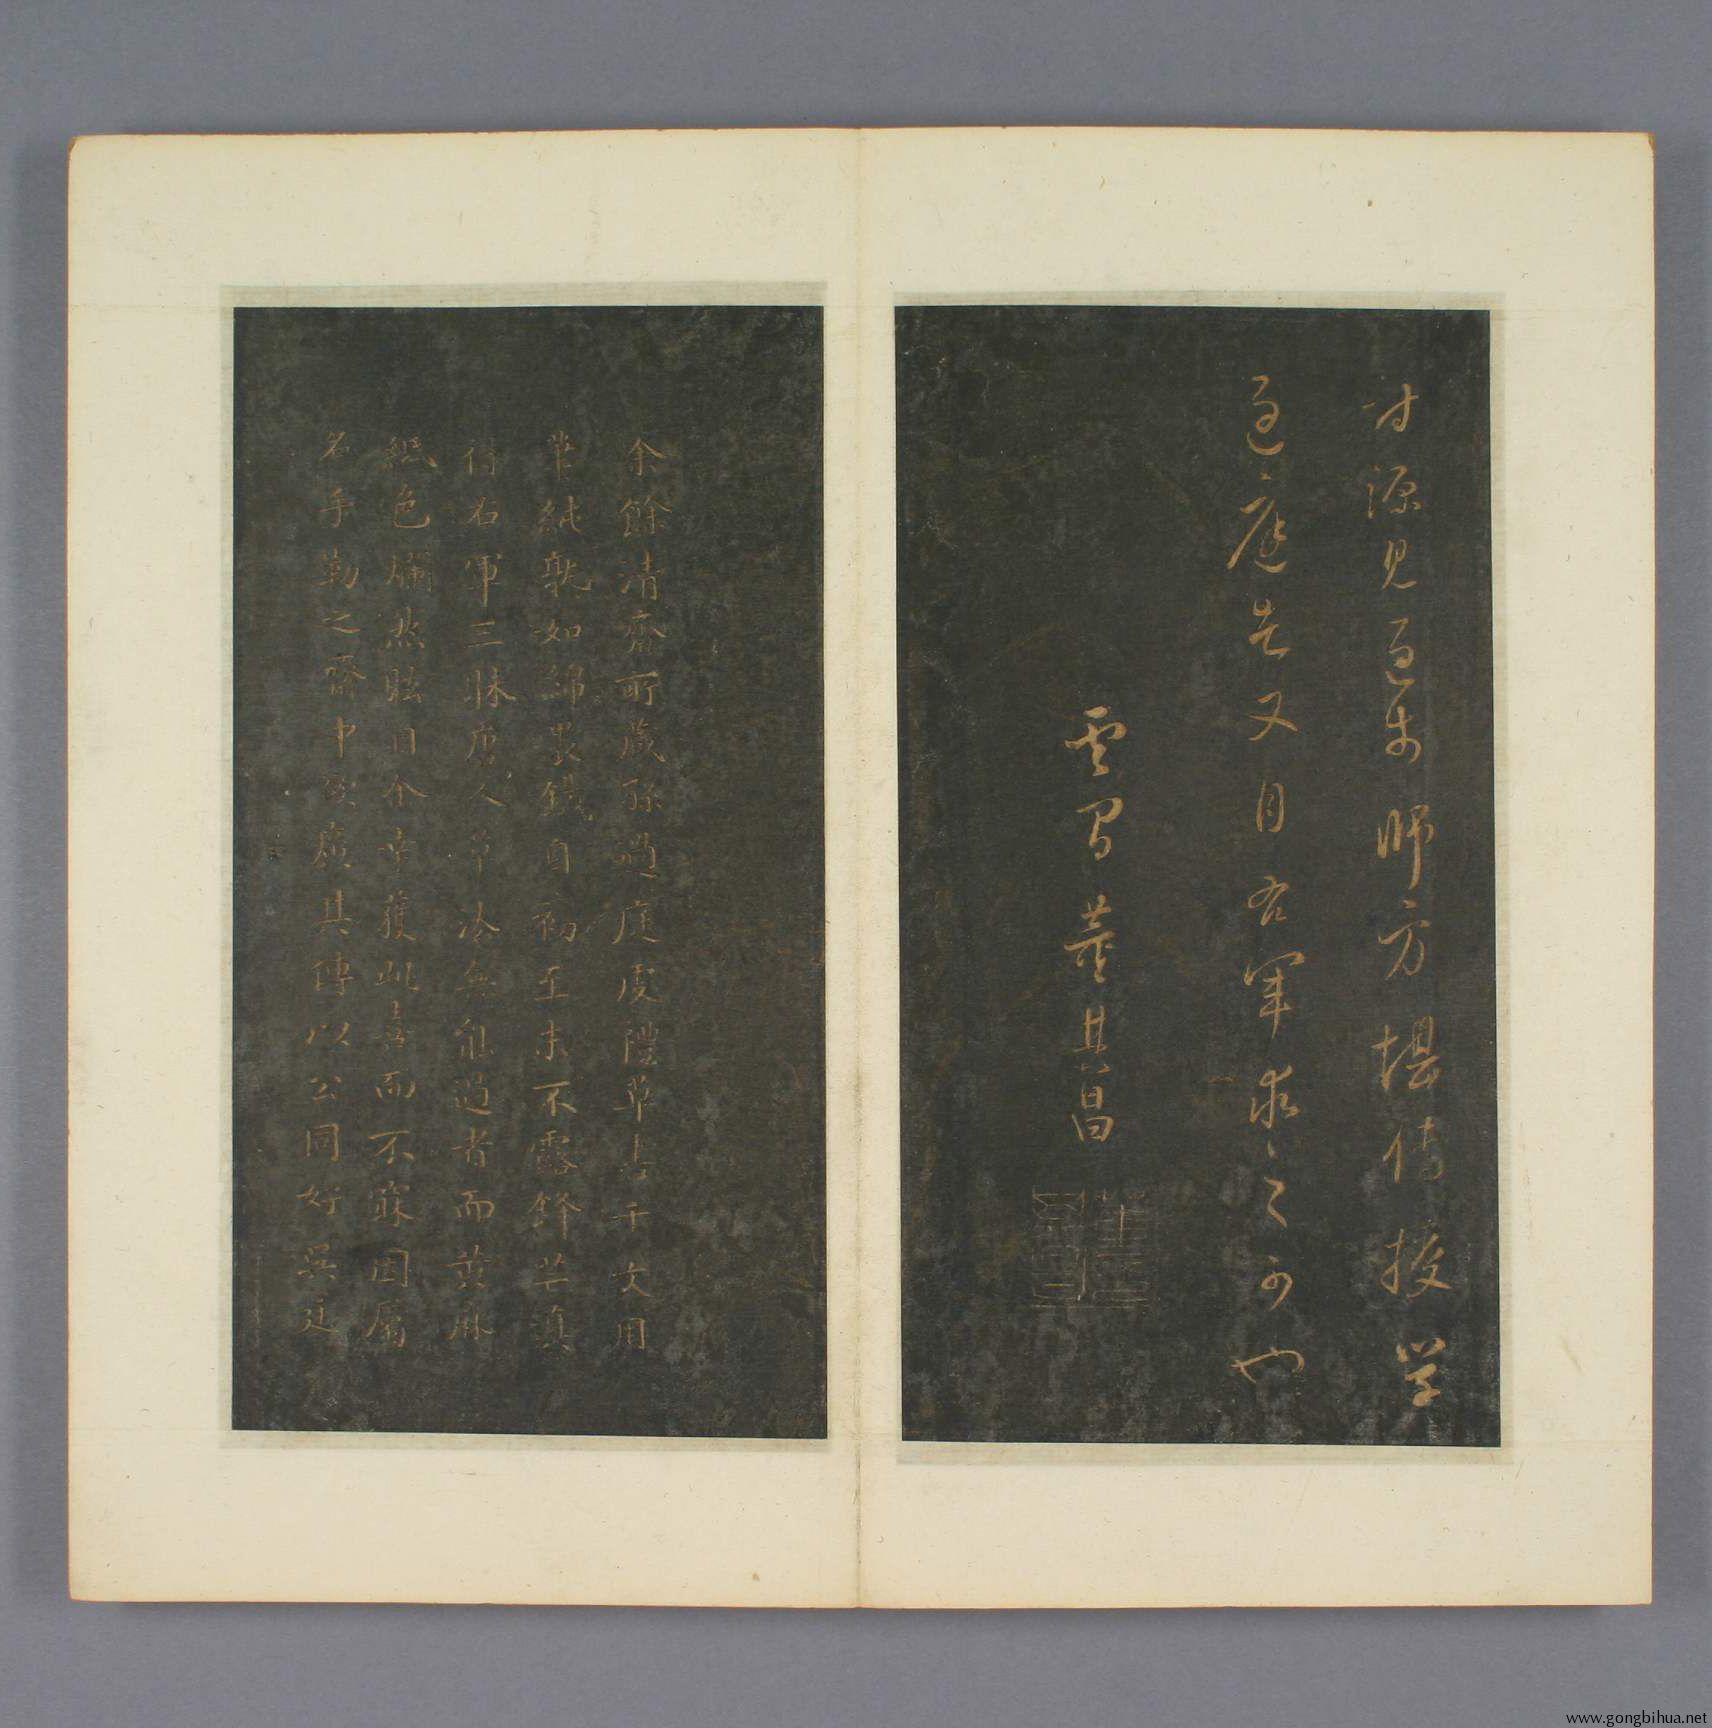 才源見過於師方堪傳授学
過庭者又自右軍求之可也
雲間董其昌
余餘清齋所藏孫過庭虔禮草書千文用
筆純熟如綿裹鐵自初至末不露鋒芒真
得右軍三昧唐人草法無能過者而黃麻
紙色爛然眩目余幸獲此喜而不寐因屬
名手勒之齋中欲廣其傳以公同好吳廷
www.gongbihua.net